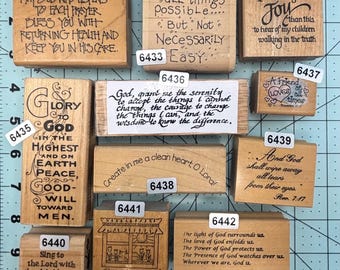 to each prayer
Bless you with
returning health and
keep you in his care.
all things
possible...
But Not
Necessarily
Easy
6433
Joy than this
to hear of my children
walking in the truth.
6437
A Friend
Loves
6435
Glory
to
God
in the
Highest
and on
Earth
Peace,
Good-
will
toward
men.
6436
God, grant me the serenity
to accept the things I cannot
change, the courage to change
the things I can, and the
wisdom to know the difference.
6439
And God
shall wipe away
all tears
from their eyes.
Rev. 7:17
Create in me a clean heart O Lord!
6438
6440
Sing to
the Lord with
6441
6442
The light of God surrounds us.
The love of God enfolds us.
The Power of God protects us.
The Presence of God watches over us.
Wherever we are, God is.